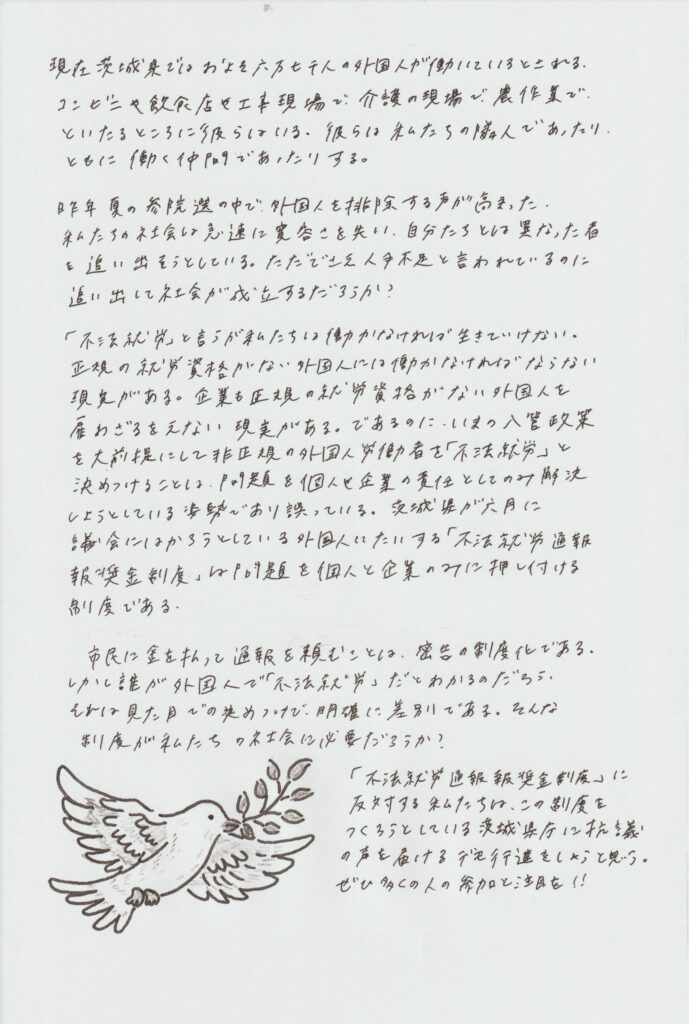 現在茨城県ではおよそ六万七千人の外国人が働いているとされる。
コンビニや飲食店や工事現場で、介護の現場で、農作業で、
といたるところに彼らはいる。彼らは私たちの隣人であったり、
ともに働く仲間であったりする。
昨年夏の参院選の中で、外国人を排除する声が高まった。
私たちの社会は急速に寛容さを失い、自分たちとは異なった者
を追い出そうとしている。ただでさえ人手不足と言われているのに
追い出して社会が成立するだろうか?
「不法就労」と言うが私たちは働かなければ生きていけない。
正規の就労資格がない外国人には働かなければならない
現実がある。企業も正規の就労資格がない外国人を
雇わざるをえない現実がある。であるのに、いまの入管政策
を大前提にして非正規の外国人労働者を「不法就労」と
決めつけることは、問題を個人や企業の責任としてのみ解決
しようとしている姿勢であり誤っている。茨城県が六月に
議会にはかろうとしている外国人にたいする「不法就労通報
報奨金制度」は問題を個人と企業のみに押し付ける
制度である。
市民に金を払って通報を頼むことは、密告の制度化である。
しかし誰が外国人で「不法就労」だとわかるのだろう。
それは見た目での決めつけで、明確に差別である。そんな
制度が私たちの社会に必要だろうか?
「不法就労通報報奨金制度」に
反対する私たちは、この制度を
つくろうとしている茨城県庁に抗議
の声を届けるデモ行進をしようと思う。
ぜひ多くの人の参加と注目を!!